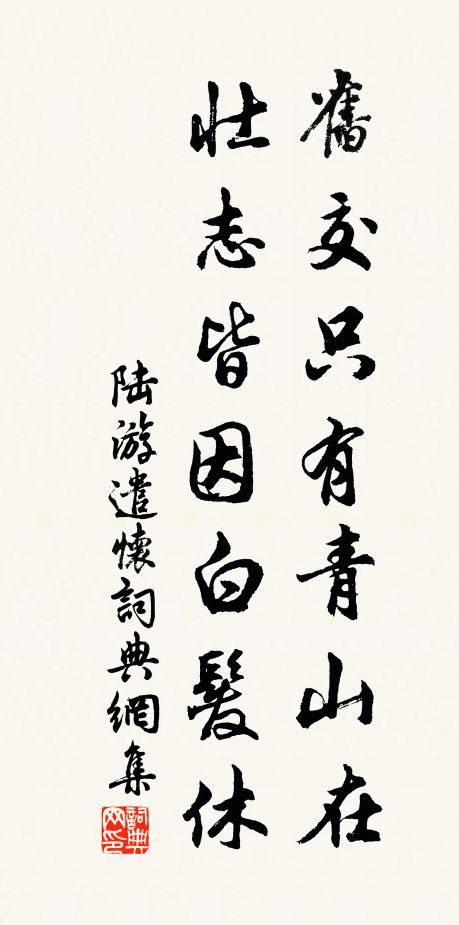 舊交只有青山在
壯志皆因白髮休
陸游遣懷詞典網集
詞典网印